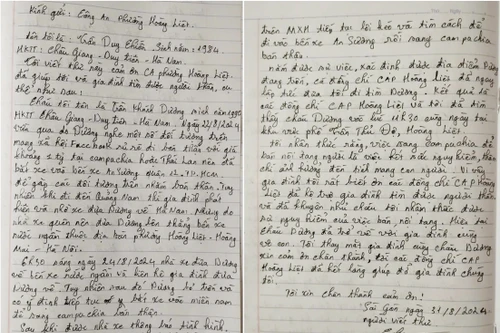 Kính gửi: Công An Phường Hoàng Liệt.
Tên tôi là: Trần Duy Thiên Sinh năm: 1984.
HKTT: Châu Giang - Duy Tiên - Hà Nam.
Tôi viết thư này cảm ơn CA phường Hoàng Liệt
đã giúp tôi và gia đình tìm được người thân, cụ
thể như sau:
Cháu tôi tên là Trần Khánh Dương sinh năm
HKTT Châu Giang - Duy Tiên - Hà Nam. Ngày 22/8/2024
vừa qua do Dương nghe một số đối tượng trên
mạng xã hội Facebook rủ rê đi bán thận với giá
khoảng 1 tỷ tại campachia hoặc Thái Lan nên đã
bắt xe vào bến xe An Sương quận 12 - TP. HCM
để gặp các đối tượng trên nhằm bán thận. Tuy
nhiên khi đi đến Quảng Nam thì gia đình phát
hiện và nhờ xe đưa Dương về Hà Nam. Nhưng do
nhà xe quên nên đưa Dương lên thẳng bến xe
nước ngầm thuộc địa bàn phường Hoàng Liệt - Hoàng
Mai - Hà Nội.
6h30 sáng ngày 24/8/2024 nhà xe đưa Dương
về bến xe nước ngầm và liên hệ gia đình đưa
Dương về. Tuy nhiên sau đó Dương bỏ trốn và
có ý định tiếp tục bắt xe vào miền nam
để sang campachia bán thận.
Sau khi được nhà xe thông báo tình hình.
trên MXH tiếp tục lôi kéo và tìm cách để
đi vào bến xe An Sương rồi sang campachia
bán thận.
nắm được sự việc, xác định được địa điểm Dương
đang trốn, các đồng chí CAP Hoàng Liệt đã ngay
lập tức đưa tôi đi tìm Dương. Kết quả là
các đồng chí CAP Hoàng Liệt và tôi đã tìm
thấy cháu Dương vào lúc 11h30 cùng ngày tại
khu vực phố Trần Thủ Độ, Hoàng Liệt.
Tôi nhận thức rằng, việc sang campachia để
bán nội tạng người là việc hết sức nguy hiểm, thậm
chí ảnh hưởng đến tính mạng con người. Vì vậy
gia đình tôi rất biết ơn các đồng chí CAP Hoàng
Liệt đã hỗ trợ gia đình tìm được người thân
và đã khuyên nhủ cháu tôi nhận thức được
sự nguy hiểm của việc bán nội tạng. Hiện tại
cháu Dương đã trở về với gia đình cùng
vợ con. Tôi thay mặt gia đình cùng cháu Dương
xin cảm ơn chân thành, tới các đồng chí CAP
Hoàng Liệt đã hết lòng giúp đỡ gia đình chúng
tôi.
Tôi xin chân thành cảm ơn!
Sài Gòn ngày 31/8/2024
người viết thư